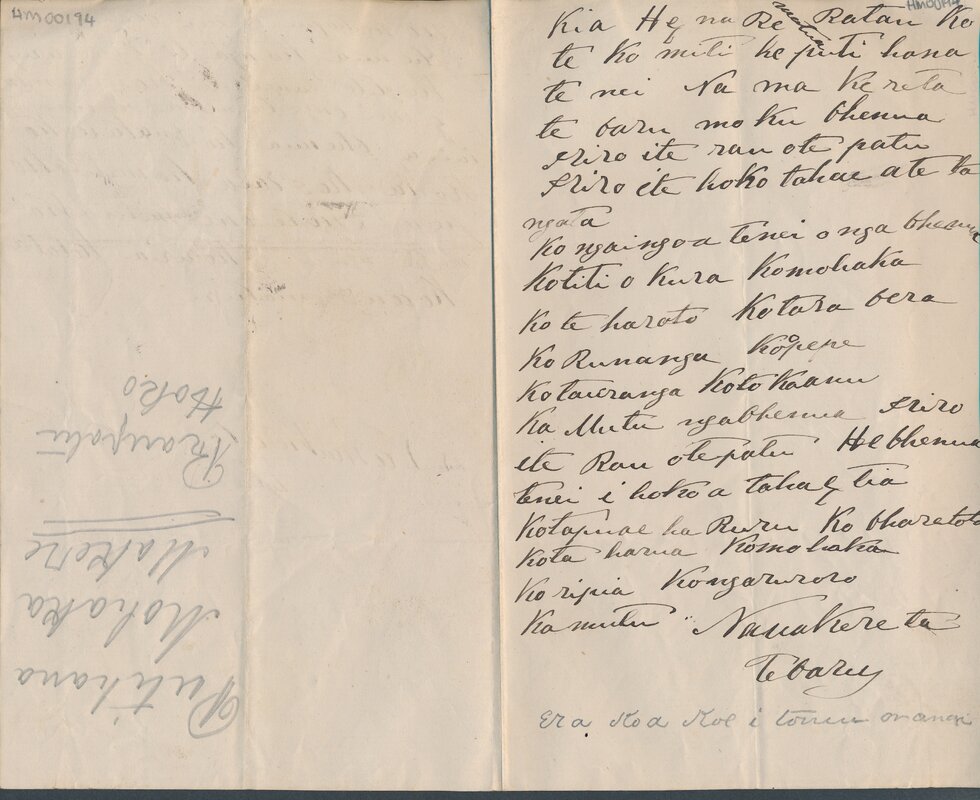 HM00194
Kia He na Re matua Ratau Ko
te Ko miti he puti hana
te nei Na ma Ke reta
te baru mo ku bhenua
iriro ite rau ote patu
iriro ite hoko tahae ate ta
ngata
Ko ngaingoa tenei o nga bhenua
Kotiti o Kura Komohaka
Ko te haroto Kotara bera
Ko Runanga Kopepe
Kotaueranga Kotokaanu
Ka Mutu ngabhenua iriro
ite Rau otepatu He bhenua
tenei i hokoa tahae tia
Kotapuae ha Ruru Ko bharetoto
Kota harua Komohaka
Ko ripia Kongaruroro
Ka mutu Namakere ta
Tebaru
Era Koa Koe i
Putihana
Mohaka
Makere
Raupatu
Hoko